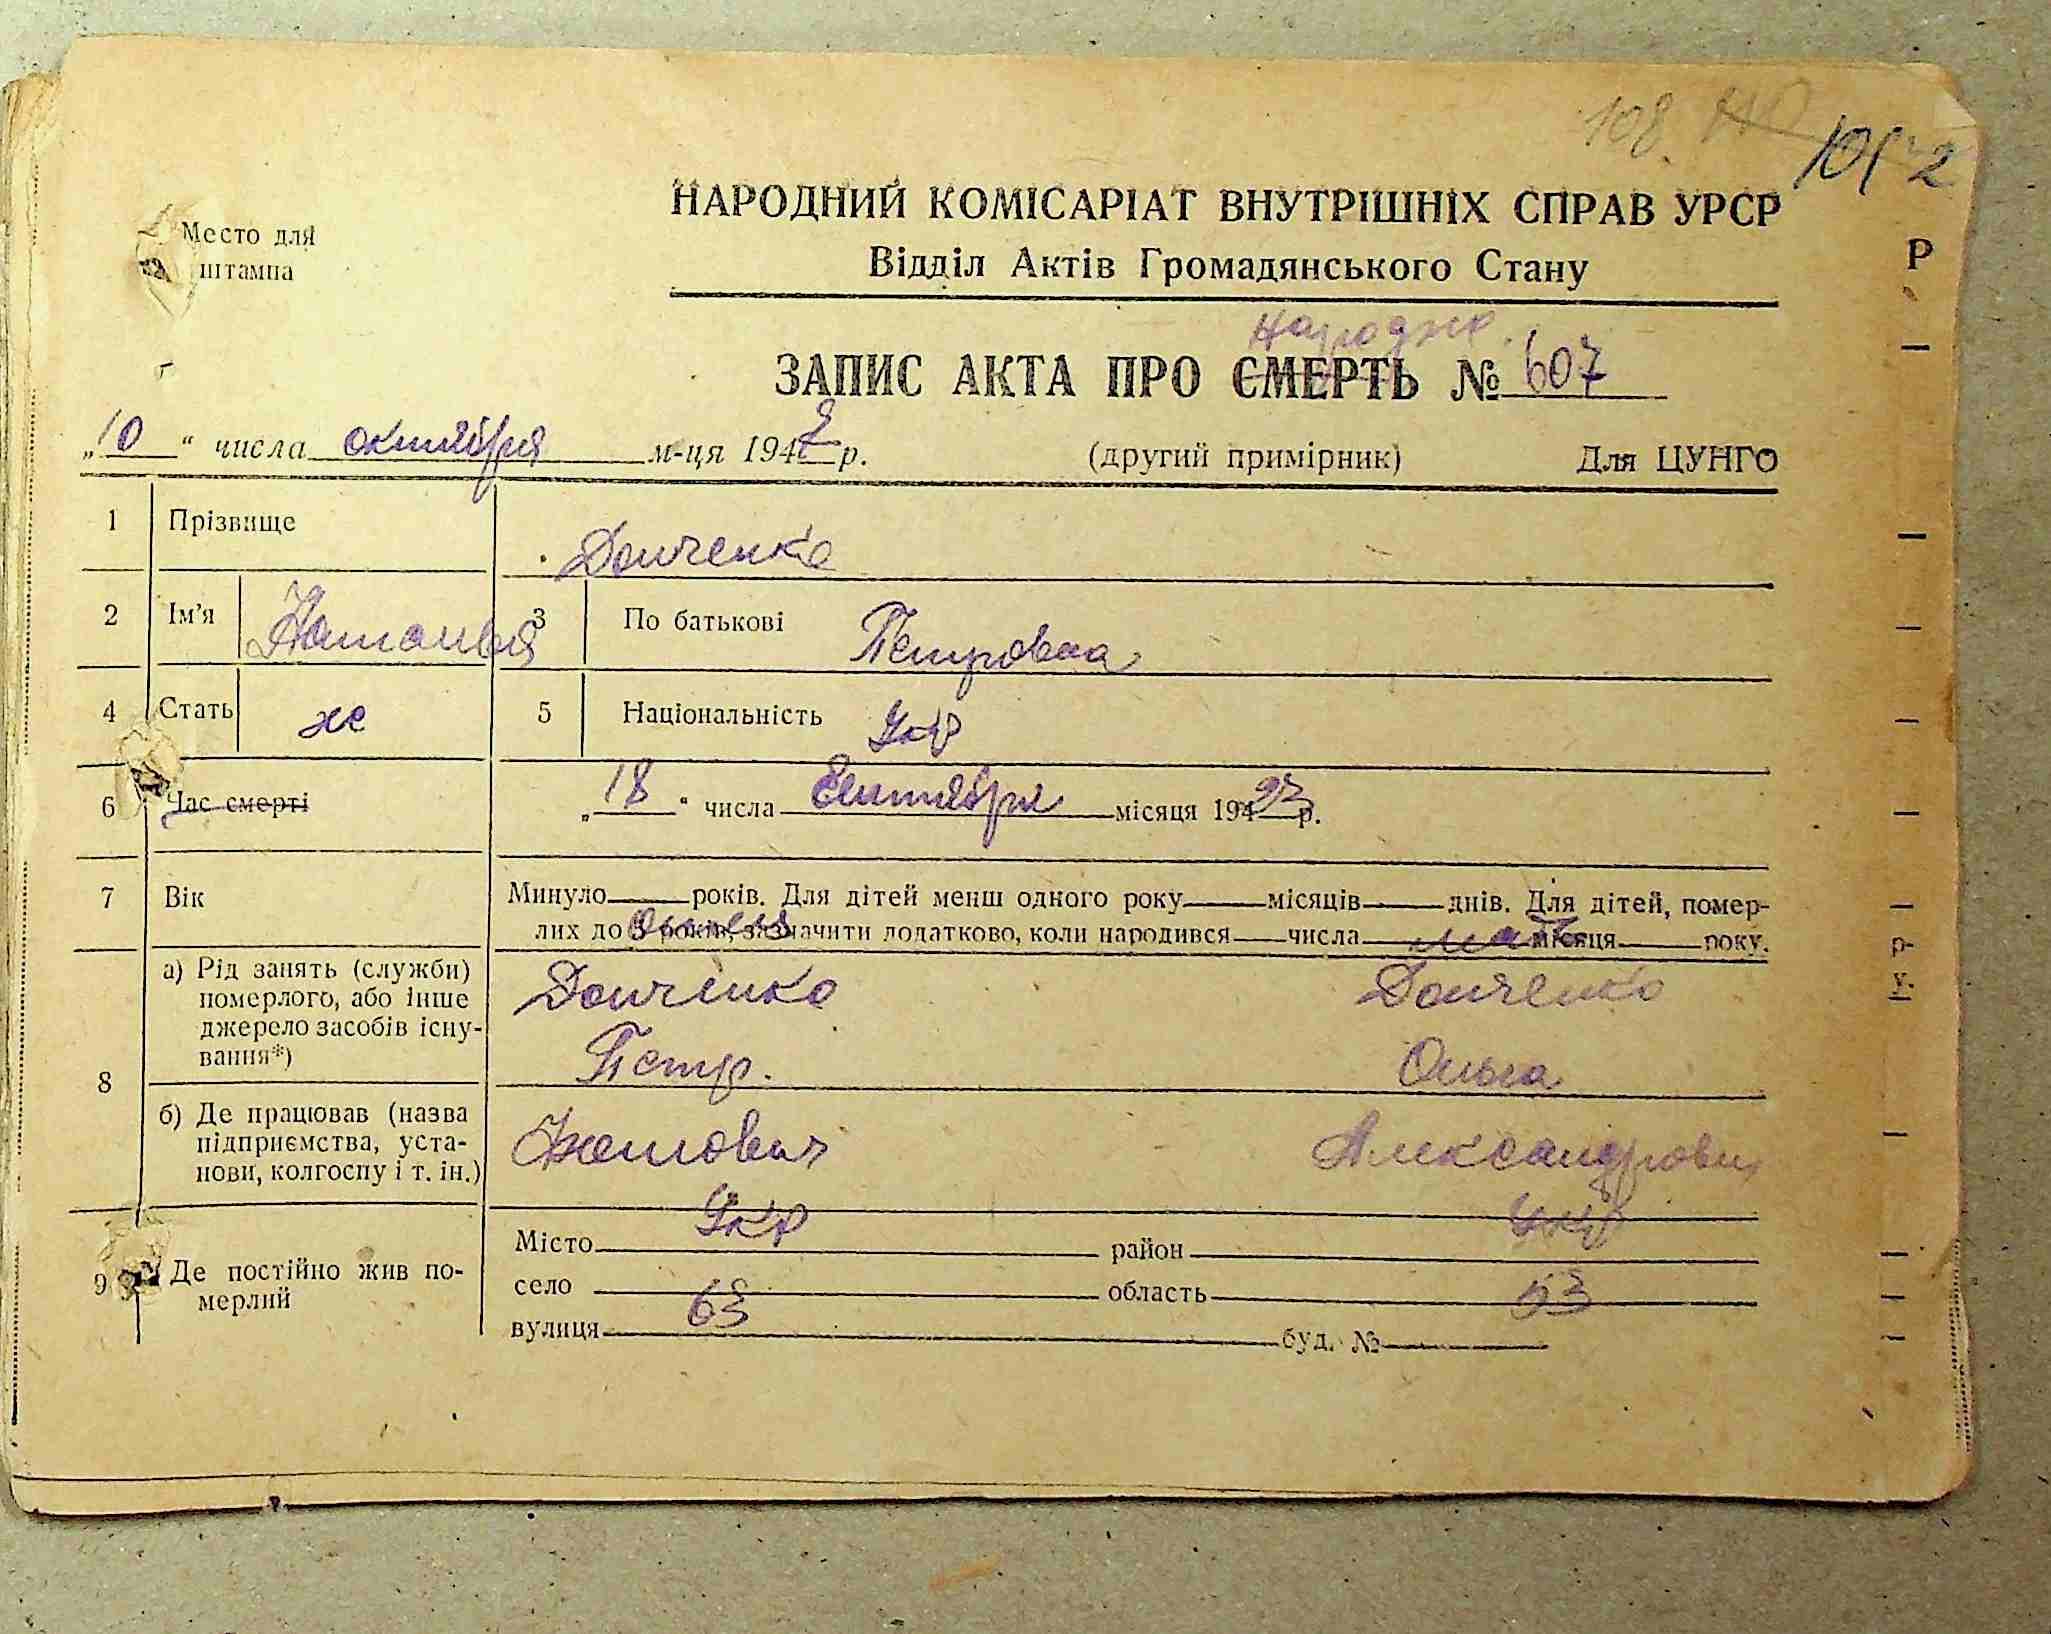 108.
НАРОДНИЙ КОМІСАРІАТ ВНУТРІШНІХ СПРАВ УРСР
Место для
штампа
Відділ Актів Громадянського Стану
Р
ЗАПИС АКТА ПРО СМЕРТЬ № 607
„10“ числа октября м-ця 194 р.
(другий примірник)
Для ЦУНГО
1 Прізвище Донченко
2 Ім'я Наталья 3 По батькові Петровна
4 Стать же 5 Національність Укр
6 Час смерті „18“ числа Сентября місяця 194 р.
7 Вік Минуло рокiв. Для дітей менш одного року місяців днів. Для дітей, помер-
лих до 3 років, зазначити додатково, коли народився числа місяця року.
отец мать
8 а) Рід занять (служби)
померлого, або інше
джерело засобів існу-
вання*)
Донченко Донченко
Петр. Ольга
б) Де працював (назва
підприємства, уста-
нови, колгоспу і т. ін.)
Александровн
Укр Укр
9 Де постійно жив по-
мерлий
Місто район
село область
63 53
вулиця буд. №